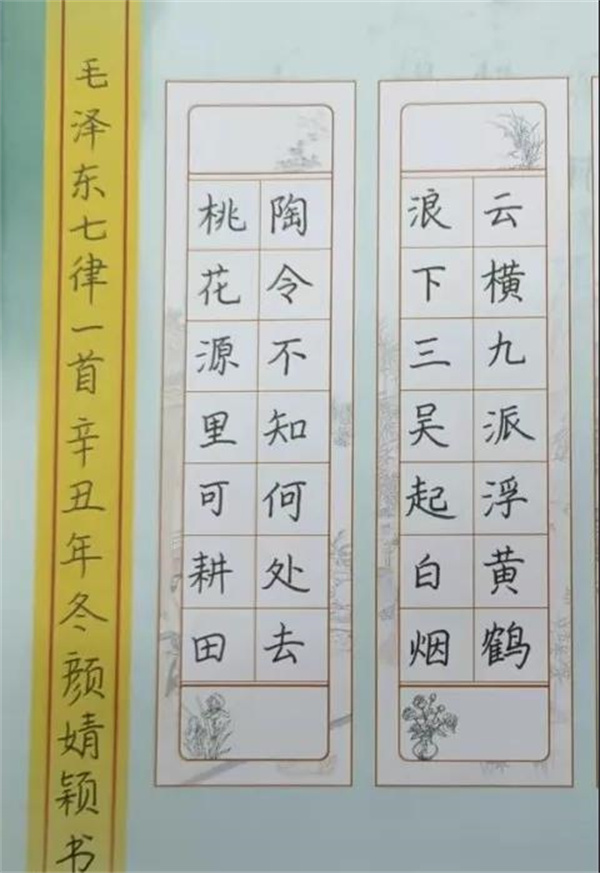 云横九派浮黄鹤
浪下三吴起白烟
陶令不知何处去
桃花源里可耕田
毛泽东七律一首辛丑年冬颜婧颖书